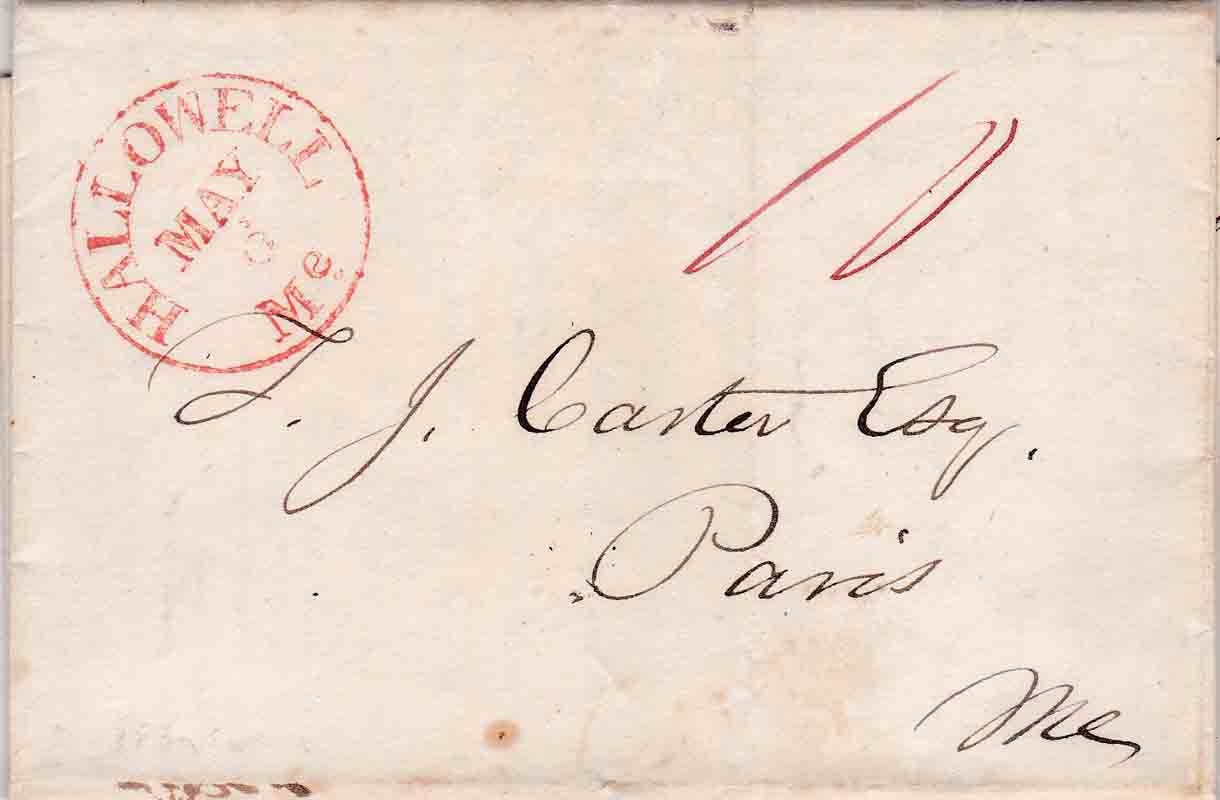 HALLOWELL Me.
MAY
10
T. J. Carter Esq.
Paris
Me